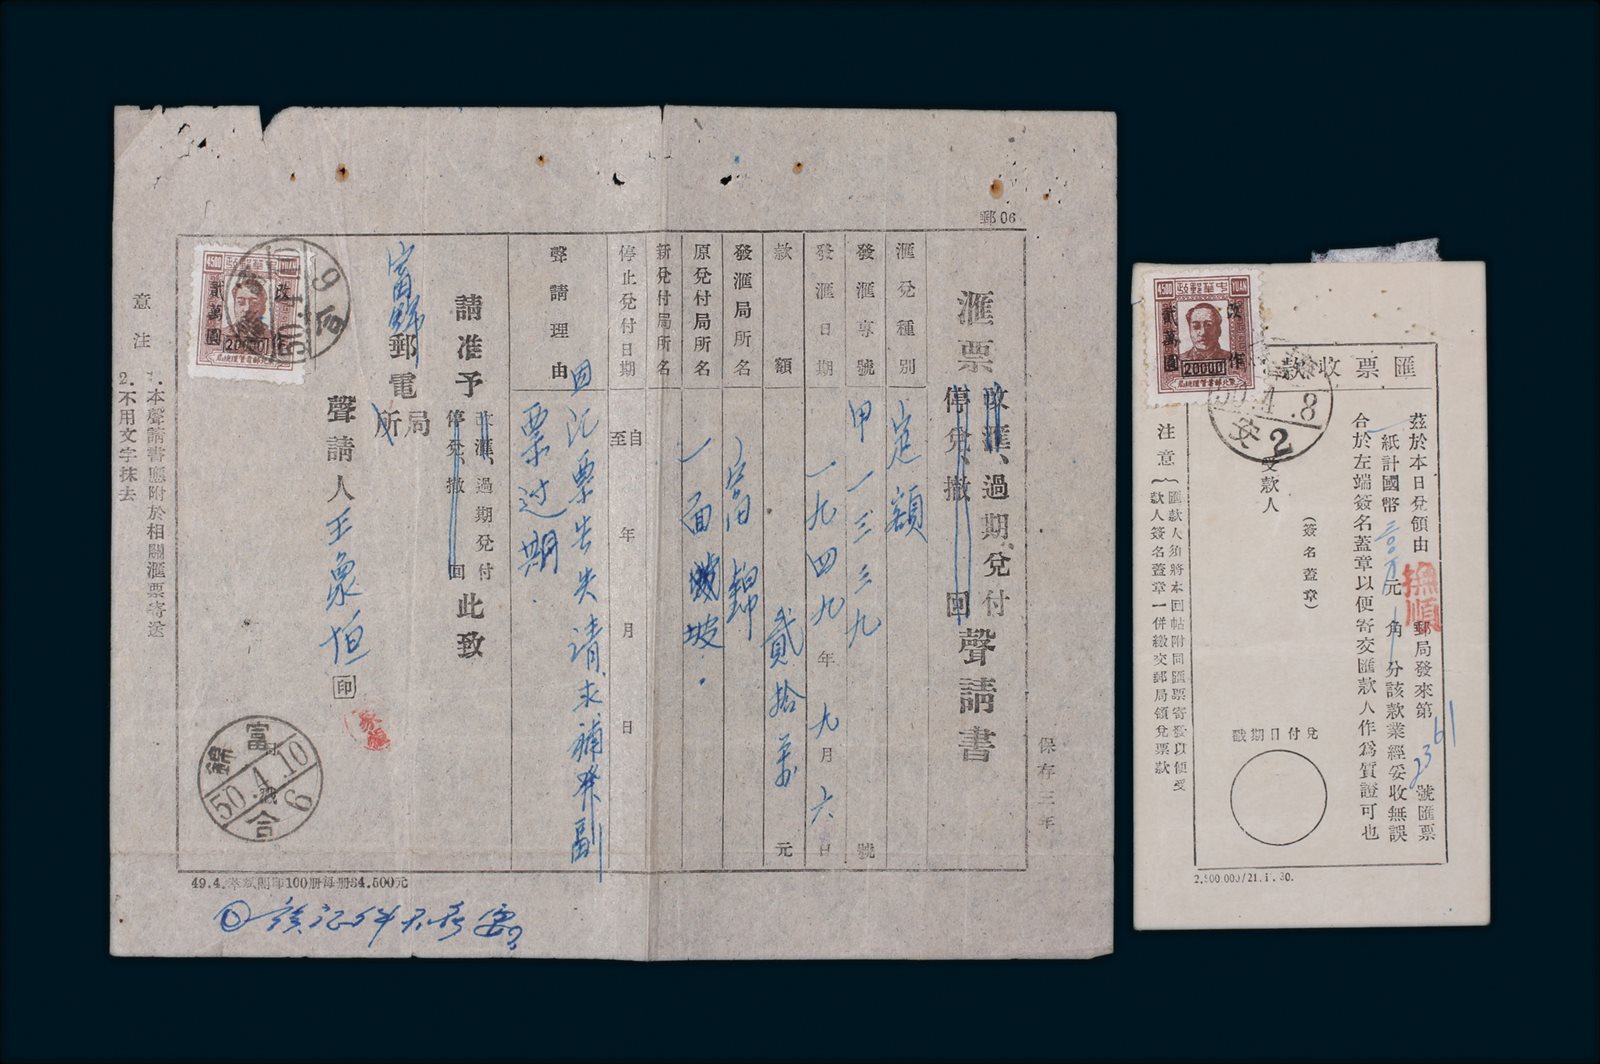 郵06
保存三年
滙票改滙、過期兌付聲請書
停兌、撤回
滙兌種別 定額
發滙專號 甲一三三九 號
發滙日期 一九四九年九月六日
款額 貳拾萬元
發滙局所名 富錦
原兌付局所名
新兌付局所名
停止兌付日期 自至 年 月 日
聲請理由 因汇票告失請求補發副
票过期.
請准予改滙、過期兌付此致
停兌、撤回
富錦郵電局
所
聲請人 王象恒 印
意注
1.本聲請書應附於相關滙票寄送
2.不用文字抹去
4500 YUAN
改作
貳萬圓
20000
富錦
50.4.10
6
合
匯票收款
茲於本日兌領由撫順郵局發來第2361號匯票
一紙計國幣 元 角 分該款業經妥收無誤
合於左端簽名蓋章以便寄交匯款人作爲質證可也
受款人
(簽名蓋章)
兌付日期戳
注意
匯款人須將本回帖附同匯票寄發以便受
款人簽名蓋章一併繳交郵局領兌票款
4500 YUAN
改作
貳萬圓
20000
安
2
2.500.000/21.1.30.